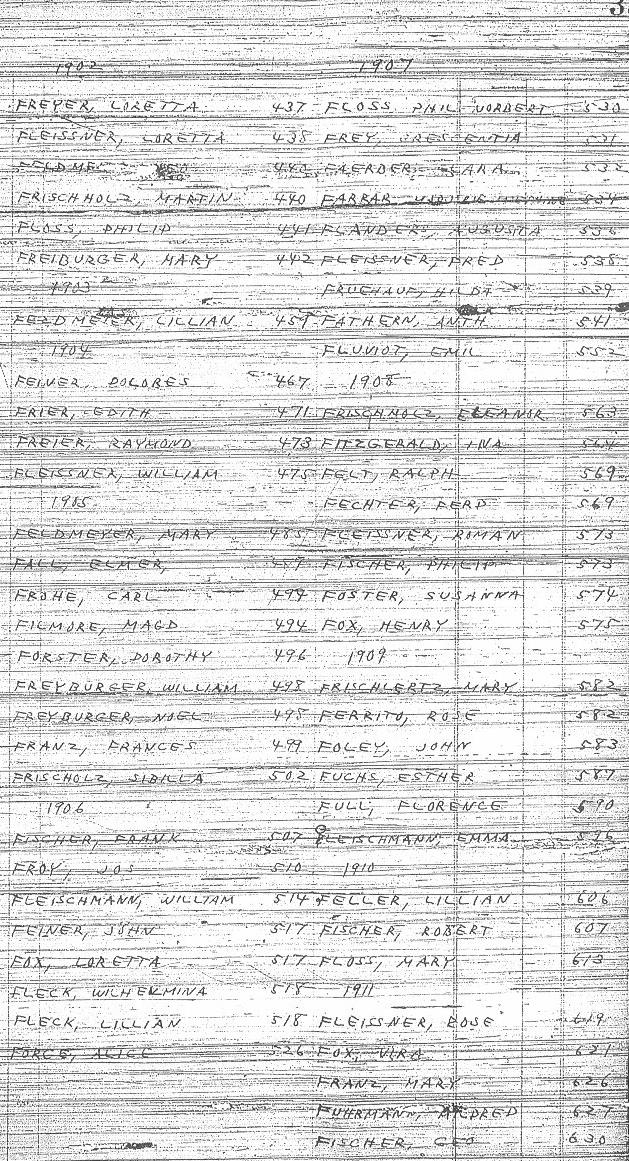 3
1902
FREYER, LORETTA 437
FLEISSNER, LORETTA 438
440
FRISCHHOLZ, MARTIN 440
FLOSS, PHILIP 441
FREIBURGER, MARY 442
1903
FELDMEIER, LILLIAN 459
1904
FEINER, DOLORES 467
FRIER, EDITH 471
FREIER, RAYMOND 473
FLEISSNER, WILLIAM 475
1905
FELDMEYER, MARY 485
FALL, ELMER,
FROHE, CARL 494
FILMORE, MAGD 494
FORSTER, DOROTHY 496
FREYBURGER, WILLIAM 498
FREYBURGER, NOEL 498
FRANZ, FRANCES 499
FRISCHOLZ, SIBILLA 502
1906
FISCHER, FRANK 507
FROY, JOS 510
FLEISCHMANN, WILLIAM 514
FEINER, JOHN 517
FOX, LORETTA 517
FLECK, WILHEMINA 518
FLECK, LILLIAN 518
FORCE, ALICE 526
1907
FLOSS PHIL NORBERT 530
FREY, CRESCENTIA 531
FAERDER, CLARA 532
FARRAR 534
FLANDERS, AUGUSTA 536
FLEISSNER, FRED 538
FRUEHAUF, HILDA 539
FATHERN, ANTH 541
FLUVIOT, EMIL 552
1908
FRISCHHOLZ, ELEANOR 563
FITZGERALD, INA 564
FELT, RALPH 569
FECHTER, FERD 569
FLEISSNER, ROMAN 573
FISCHER, PHILIP 573
FOSTER, SUSANNA 574
FOX, HENRY 575
1909
FRISCHLERTZ, MARY 582
FERRITO, ROSE 582
FOLEY, JOHN 583
FUCHS, ESTHER 587
FULL, FLORENCE 590
FLEISCHMANN, EMMA 596
1910
FELLER, LILLIAN 606
FISCHER, ROBERT 607
FLOSS, MARY 613
1911
FLEISSNER, ROSE 619
FOX, VIRA 621
FRANZ, MARY 626
FUHRMANN, MILDRED 627
FISCHER, GEO 630